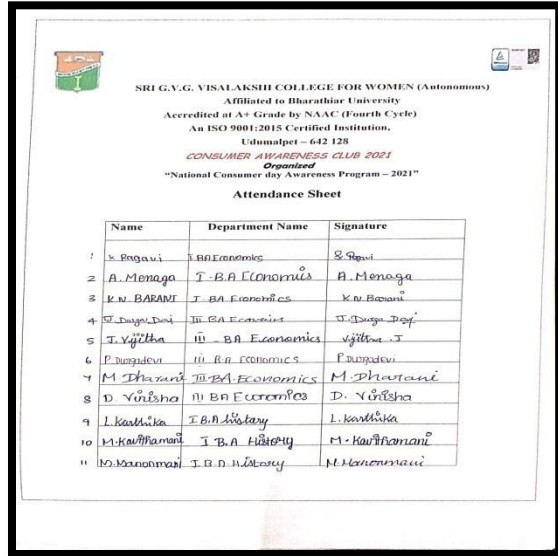 SRI G.V.G. VISALAKSHI COLLEGE FOR WOMEN (Autonomous)
Affiliated to Bharathiar University
Accredited at A+ Grade by NAAC (Fourth Cycle)
An ISO 9001:2015 Certified Institution,
Udumalpet – 642 128
CONSUMER AWARENESS CLUB 2021
Organized
“National Consumer day Awareness Program – 2021”
Attendance Sheet
Name Department Name Signature
1 K Ragavi I BA Economics
2 A. Menaga I - B.A Economics A. Menaga
3 K.N. BARANI I - BA Economics K.N. Barani
4 J. Durga Devi III BA Economics J. Durga Devi
5 J. Vijitha III - BA Economics Vijitha . J
6 P Durgadevi III B.A ECONOMICS P Durgadevi
7 M Dharani III BA. Economics M. Dharani
8 D. Vinisha III BA Economics D. Vinisha
9 L. Karthika I B.A history L. Karthika
10 M. Kavithamani I B.A History M. Kavithamani
11 M. Manonmani I B.A History M. Manonmani